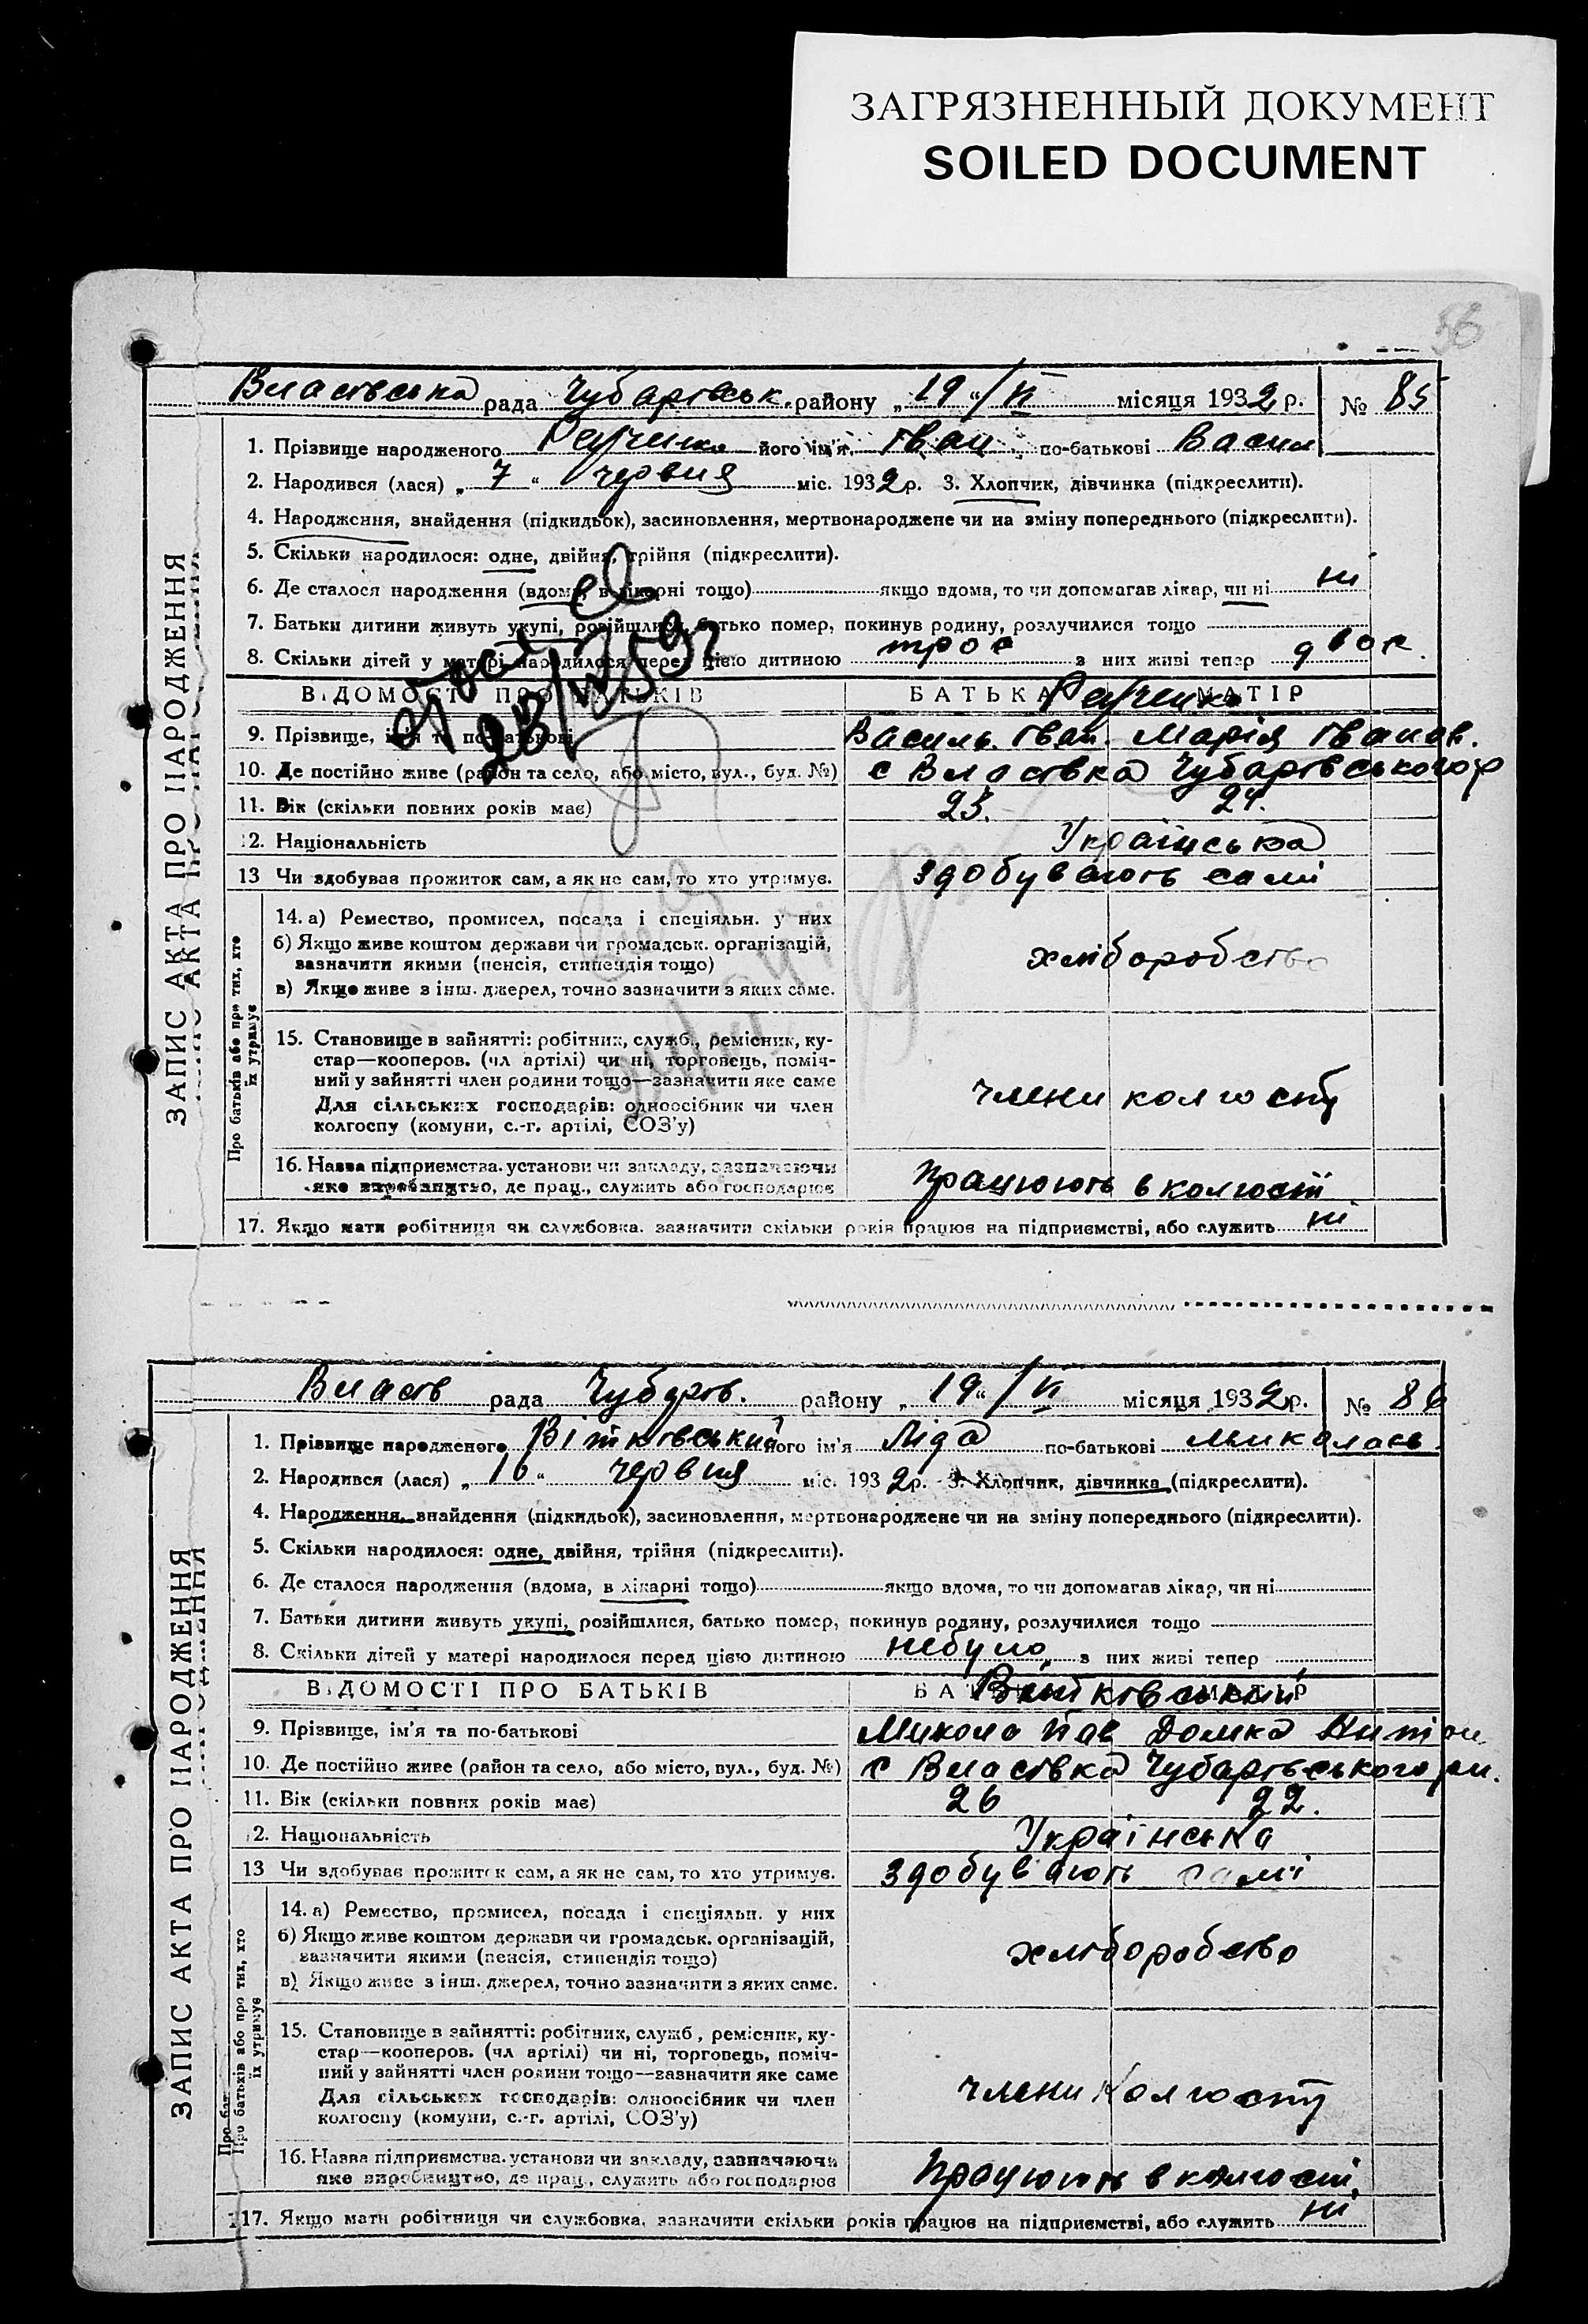 ЗАГРЯЗНЕННЫЙ ДОКУМЕНТ
SOILED DOCUMENT
56
ЗАПИС АКТА ПРО НАРОДЖЕННЯ
Властівська рада Чубарівськ. району „19“ /VI місяця 1932 р. № 85
1. Прізвище народженого його ім'я Іван по-батькові Васил
2. Народився (лася) „7“ червня міс. 1932 р. 3. Хлопчик, дівчинка (підкреслити).
4. Народження, знайдення (підкидьок), засиновлення, мертвонароджене чи на зміну попереднього (підкреслити).
5. Скільки народилося: одне, двійня, трійня (підкреслити).
6. Де сталося народження (вдома, в лікарні тощо) якщо вдома, то чи допомагав лікар, чи ні ні
7. Батьки дитини живуть укупі, розійшлися, батько помер, покинув родину, розлучилися тощо
8. Скільки дітей у матері народилося перед цією дитиною троє з них живі тепер двок.
ВІДОМОСТІ ПРО БАТЬКІВ БАТЬКА МАТІР
9. Прізвище, ім'я та по-батькові Василь Іван. Марія Іванов.
10. Де постійно живе (район та село, або місто, вул., буд. №) с Властівка Чубарівського р
11. Вік (скільки повних років має) 23. 24.
12. Національність Українська
13 Чи здобуває прожиток сам, а як не сам, то хто утримує. здобувають самі
Про батьків або про тих, хто їх утримує
14. а) Ремество, промисел, посада і спеціяльн. у них
б) Якщо живе коштом держави чи громадськ. організацій,
зазначити якими (пенсія, стипендія тощо) хліборобство
в) Якщо живе з інш. джерел, точно зазначити з яких саме.
15. Становище в зайнятті: робітник, служб., ремісник, ку-
стар—кооперов. (чл артілі) чи ні, торговець, поміч-
ний у зайнятті член родини тощо—зазначити яке саме
Для сільських господарів: одноосібник чи член члени колгоспу
колгоспу (комуни, с.-г. артілі, СОЗ'у)
16. Назва підприємства. установи чи закладу, зазначаючи
яке виробництво, де прац., служить або господарює працюють в колгоспі
17. Якщо мати робітниця чи службовка. зазначити скільки років працює на підприємстві, або служить ні
ЗАПИС АКТА ПРО НАРОДЖЕННЯ
Власів рада Чубарів. району „19“ /VI місяця 1932 р. № 86
1. Прізвище народженого Вітківський його ім'я Ліда по-батькові Миколаєв
2. Народився (лася) „16“ червня міс. 1932 р. 3. Хлопчик, дівчинка (підкреслити).
4. Народження, знайдення (підкидьок), засиновлення, мертвонароджене чи на зміну попереднього (підкреслити).
5. Скільки народилося: одне, двійня, трійня (підкреслити).
6. Де сталося народження (вдома, в лікарні тощо) якщо вдома, то чи допомагав лікар, чи ні
7. Батьки дитини живуть укупі, розійшлися, батько помер, покинув родину, розлучилися тощо
8. Скільки дітей у матері народилося перед цією дитиною небуло з них живі тепер
ВІДОМОСТІ ПРО БАТЬКІВ БАТЬКА МАТІР
Вітківський
9. Прізвище, ім'я та по-батькові Микола Пав Домка
10. Де постійно живе (район та село, або місто, вул., буд. №) с Властівка Чубарівського рн.
11. Вік (скільки повних років має) 26 22.
12. Національність Українська
13 Чи здобуває прожиток сам, а як не сам, то хто утримує. здобувають самі
Про батьків або про тих, хто їх утримує
14. а) Ремество, промисел, посада і спеціяльн. у них
б) Якщо живе коштом держави чи громадськ. організацій,
зазначити якими (пенсія, стипендія тощо) хліборобство
в) Якщо живе з інш. джерел, точно зазначити з яких саме.
15. Становище в зайнятті: робітник, служб., ремісник, ку-
стар—кооперов. (чл артілі) чи ні, торговець, поміч-
ний у зайнятті член родини тощо—зазначити яке саме
Для сільських господарів: одноосібник чи член члени колгоспу
колгоспу (комуни, с.-г. артілі, СОЗ'у)
16. Назва підприємства. установи чи закладу, зазначаючи
яке виробництво, де прац., служить або господарює працюють в колгоспі.
17. Якщо мати робітниця чи службовка, зазначити скільки років працює на підприємстві, або служить ні